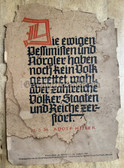 Die ewigen
Pessimisten und
Nörgler haben
noch kein Volk
gerettet wohl
aber zahlreiche
Völker, Staaten
und Reiche zer-
stört.
ADOLF HITLER